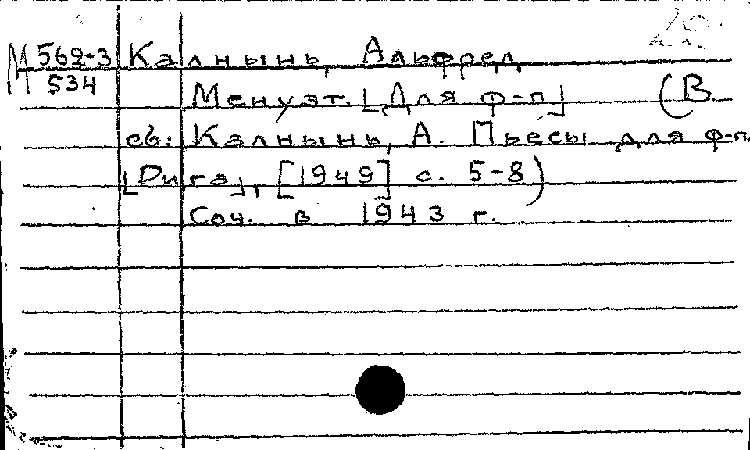 М 562-3 Калнынь, Альфред
534
Менуэт. [Для ф-п] (В
сб: Калнынь, А. Пьесы для ф-п.
[Рига], [1949] с. 5-8)
Соч. в 1943 г.